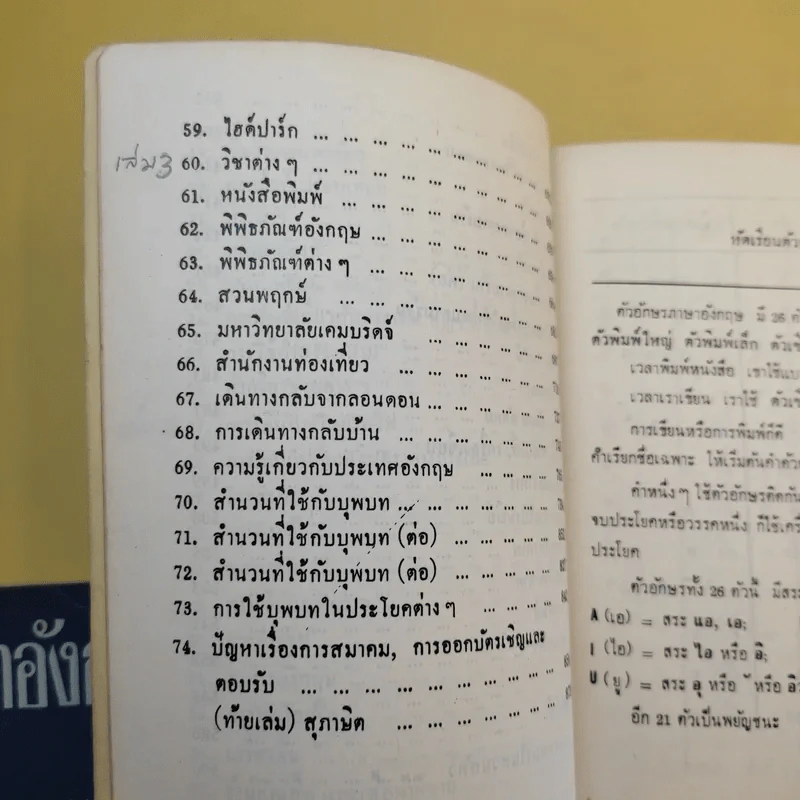 59. ไฮด์ปาร์ก ... ... ... ... ... ... ... ...
เล่ม3 60. วิชาต่าง ๆ ... ... ... ... ... ... ... ...
61. หนังสือพิมพ์ ... ... ... ... ... ... ...
62. พิพิธภัณฑ์อังกฤษ ... ... ... ... ... ...
63. พิพิธภัณฑ์ต่าง ๆ ... ... ... ... ... ...
64. สวนพฤกษ์ ... ... ... ... ... ... ...
65. มหาวิทยาลัยเคมบริดจ์ ... ... ... ... ...
66. สำนักงานท่องเที่ยว ... ... ... ... ... ...
67. เดินทางกลับจากลอนดอน ... ... ... ... ...
68. การเดินทางกลับบ้าน ... ... ... ... ... ...
69. ความรู้เกี่ยวกับประเทศอังกฤษ ... ... ... ...
70. สำนวนที่ใช้กับบุพบท ... ... ... ... ... ...
71. สำนวนที่ใช้กับบุพบท (ต่อ) ... ... ... ...
72. สำนวนที่ใช้กับบุพบท (ต่อ) ... ... ... ...
73. การใช้บุพบทในประโยคต่าง ๆ ... ... ... ...
74. ปัญหาเรื่องการสมาคม, การออกบัตรเชิญและ
ตอบรับ ... ... ... ... ... ... ... ... ...
(ท้ายเล่ม) สุภาษิต ... ... ... ... ... ...
หัดเรียนตัว
ตัวอักษรภาษาอังกฤษ มี 26 ตั
ตัวพิมพ์ใหญ่ ตัวพิมพ์เล็ก ตัวเขี
เวลาพิมพ์หนังสือ เราใช้แบ
เวลาเราเขียน เราใช้ ตัวเขี
การเขียนหรือการพิมพ์ก็ดี
คำเรียกชื่อเฉพาะ ให้เริ่มต้นคำด้ว
คำหนึ่ง ๆ ใช้ตัวอักษรติดกัน
จบประโยคหรือวรรคหนึ่ง ก็ใช้เครื่
ประโยค
ตัวอักษรทั้ง 26 ตัวนี้ มีสระ
A (เอ) = สระ แอ, เอ;
I (ไอ) = สระ ไอ หรือ อิ;
U (ยู) = สระ อุ หรือ ั หรือ อิว
อีก 21 ตัวเป็นพยัญชนะ